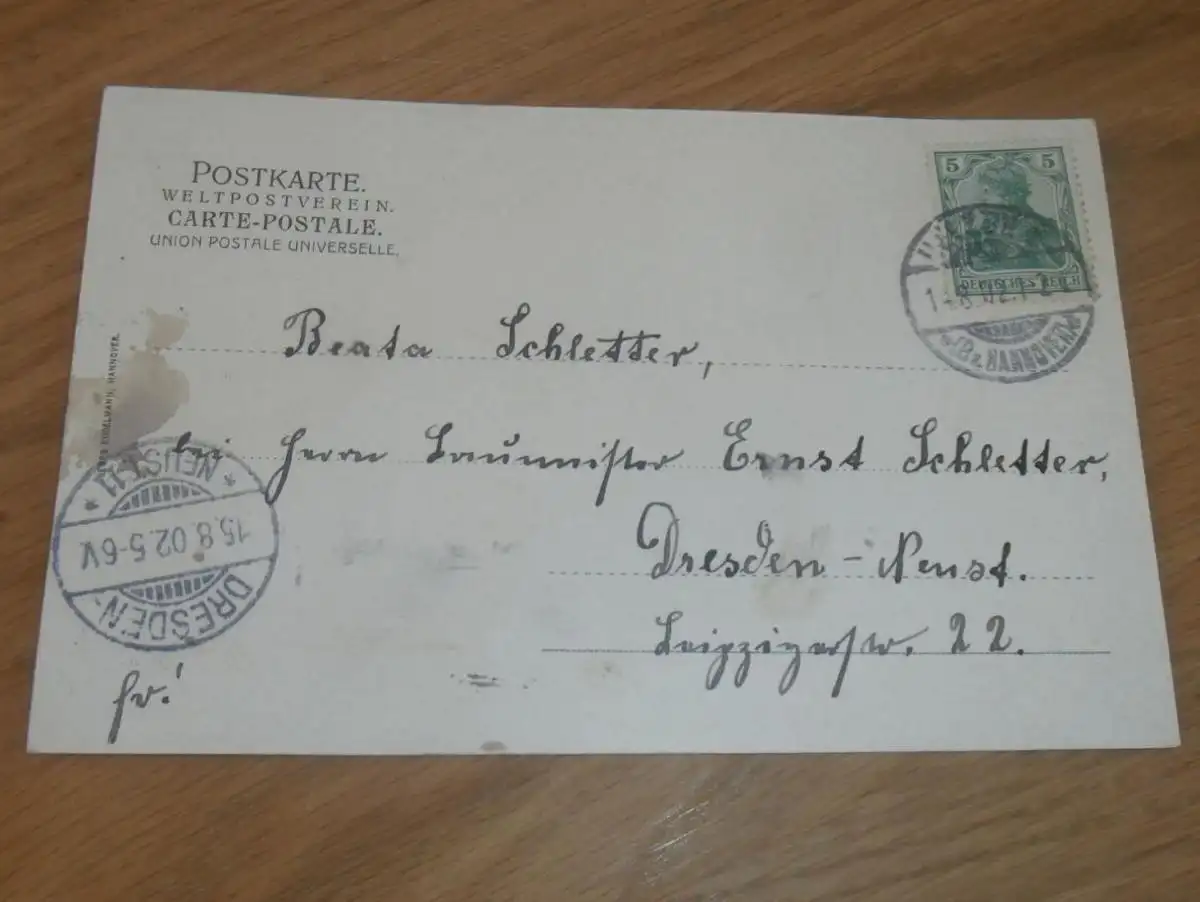 POSTKARTE.
WELTPOSTVEREIN.
CARTE-POSTALE.
UNION POSTALE UNIVERSELLE.
5 5
DEUTSCHES REICH
8.02.
HANNOVER
Beata Schletter,
bei Herrn Baumeister Ernst Schletter,
Dresden-Neust.
Leipzigerstr. 22.
DRESDEN-
15.8.02.5-6V.
* NEUST. *
HANNOVER.
fr!